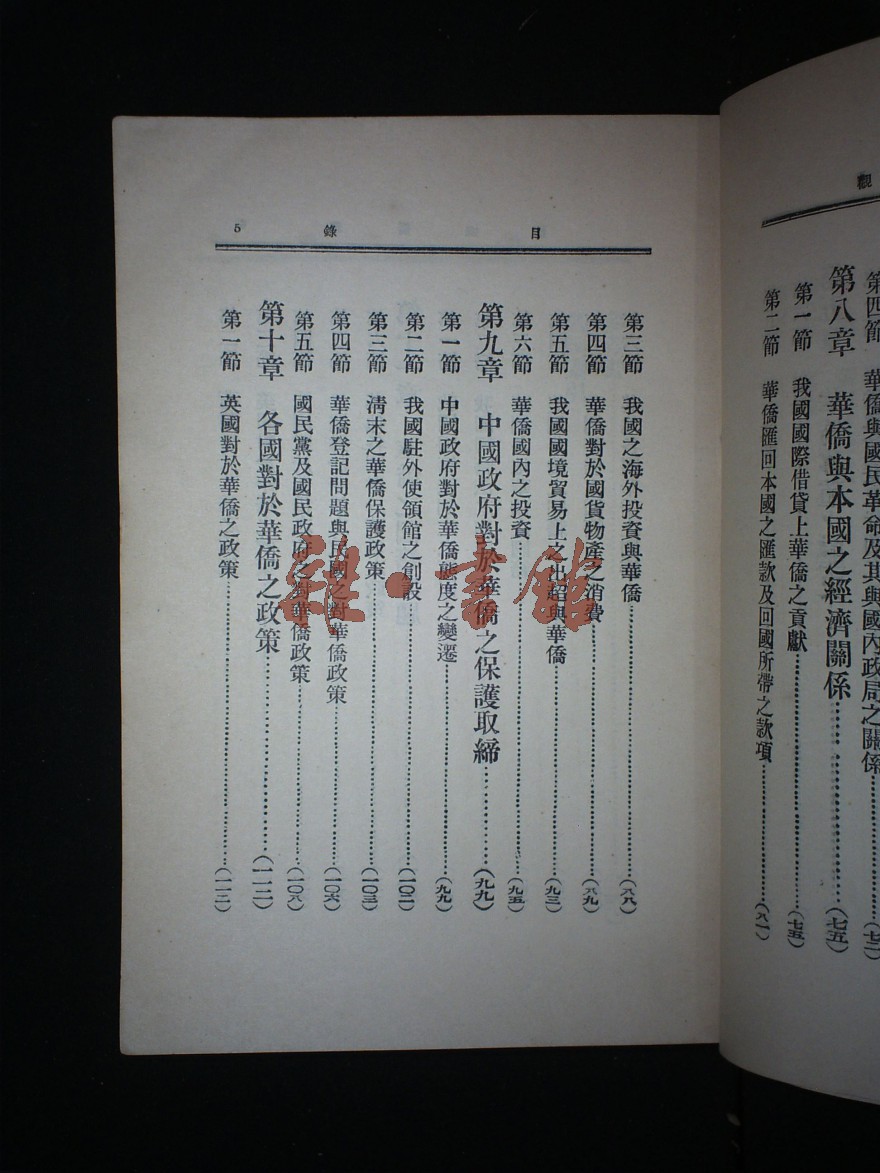 觀
第四節　華僑與國民革命及其與國內政局之關係……(七二)
第八章　華僑與本國之經濟關係……(七五)
第一節　我國國際借貸上華僑之貢獻……(七五)
第二節　華僑匯回本國之匯款及回國所帶之款項……(八一)
目錄 5
第三節　我國之海外投資與華僑……(八八)
第四節　華僑對於國貨物產之消費……(八九)
第五節　我國國境貿易上之出超與華僑……(九三)
第六節　華僑國內之投資……(九五)
第九章　中國政府對於華僑之保護取締……(九九)
第一節　中國政府對於華僑態度之變遷……(九九)
第二節　我國駐外使領館之創設……(一〇二)
第三節　清末之華僑保護政策……(一〇三)
第四節　華僑登記問題與民國之對華僑政策……(一〇六)
第五節　國民黨及國民政府之對華僑政策……(一〇八)
第十章　各國對於華僑之政策……(一一二)
第一節　英國對於華僑之政策……(一一二)
雜·書館